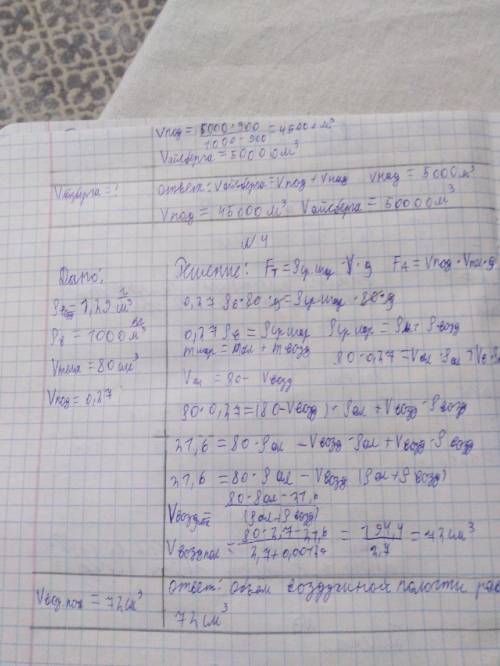 Vпод = 5000·900 / 1000-900 = 45000 м³
Vайсберга = 50000 м³
Vайсберга = ? Ответ: Vайсберга = Vпод + Vнад Vнад = 5000 м³
Vпод = 45000 м³ Vайсберга = 50000 м³
N 4
Дано: Решение: Fт = ρср.шар · V · g Fа = Vпод · · g
= 1,29 г/м³ 0,27 ρв · 80 · g = ρср.шар · 80 · g
ρв = 1000 кг/м³ 0,27 ρв = ρср.шар ρср.шар = ρвозд
mшар = mал + mвозд 80 · 0,27 = Vал · ρал + Vв
= 80 см³ Vал = 80 - Vвозд
Vпод = 0,27
80 · 0,27 = (80 - Vвозд) · ρал + Vвозд · ρвозд
21,6 = 80 · ρал - Vвозд · ρал + Vвозд · ρвозд
21,6 = 80 · ρал - Vвозд (ρал + ρвозд)
Vвозд = 80 · ρал - 21,6 / (ρал + ρвозд)
Vвозд.пол = 80 · 2,7 - 21,6 / 2,7 + 0,00129 = 194,4 / 2,7 = 72 см³
Vвоз.пол = 72 см³ Ответ: объем воздушной полости
72 см³